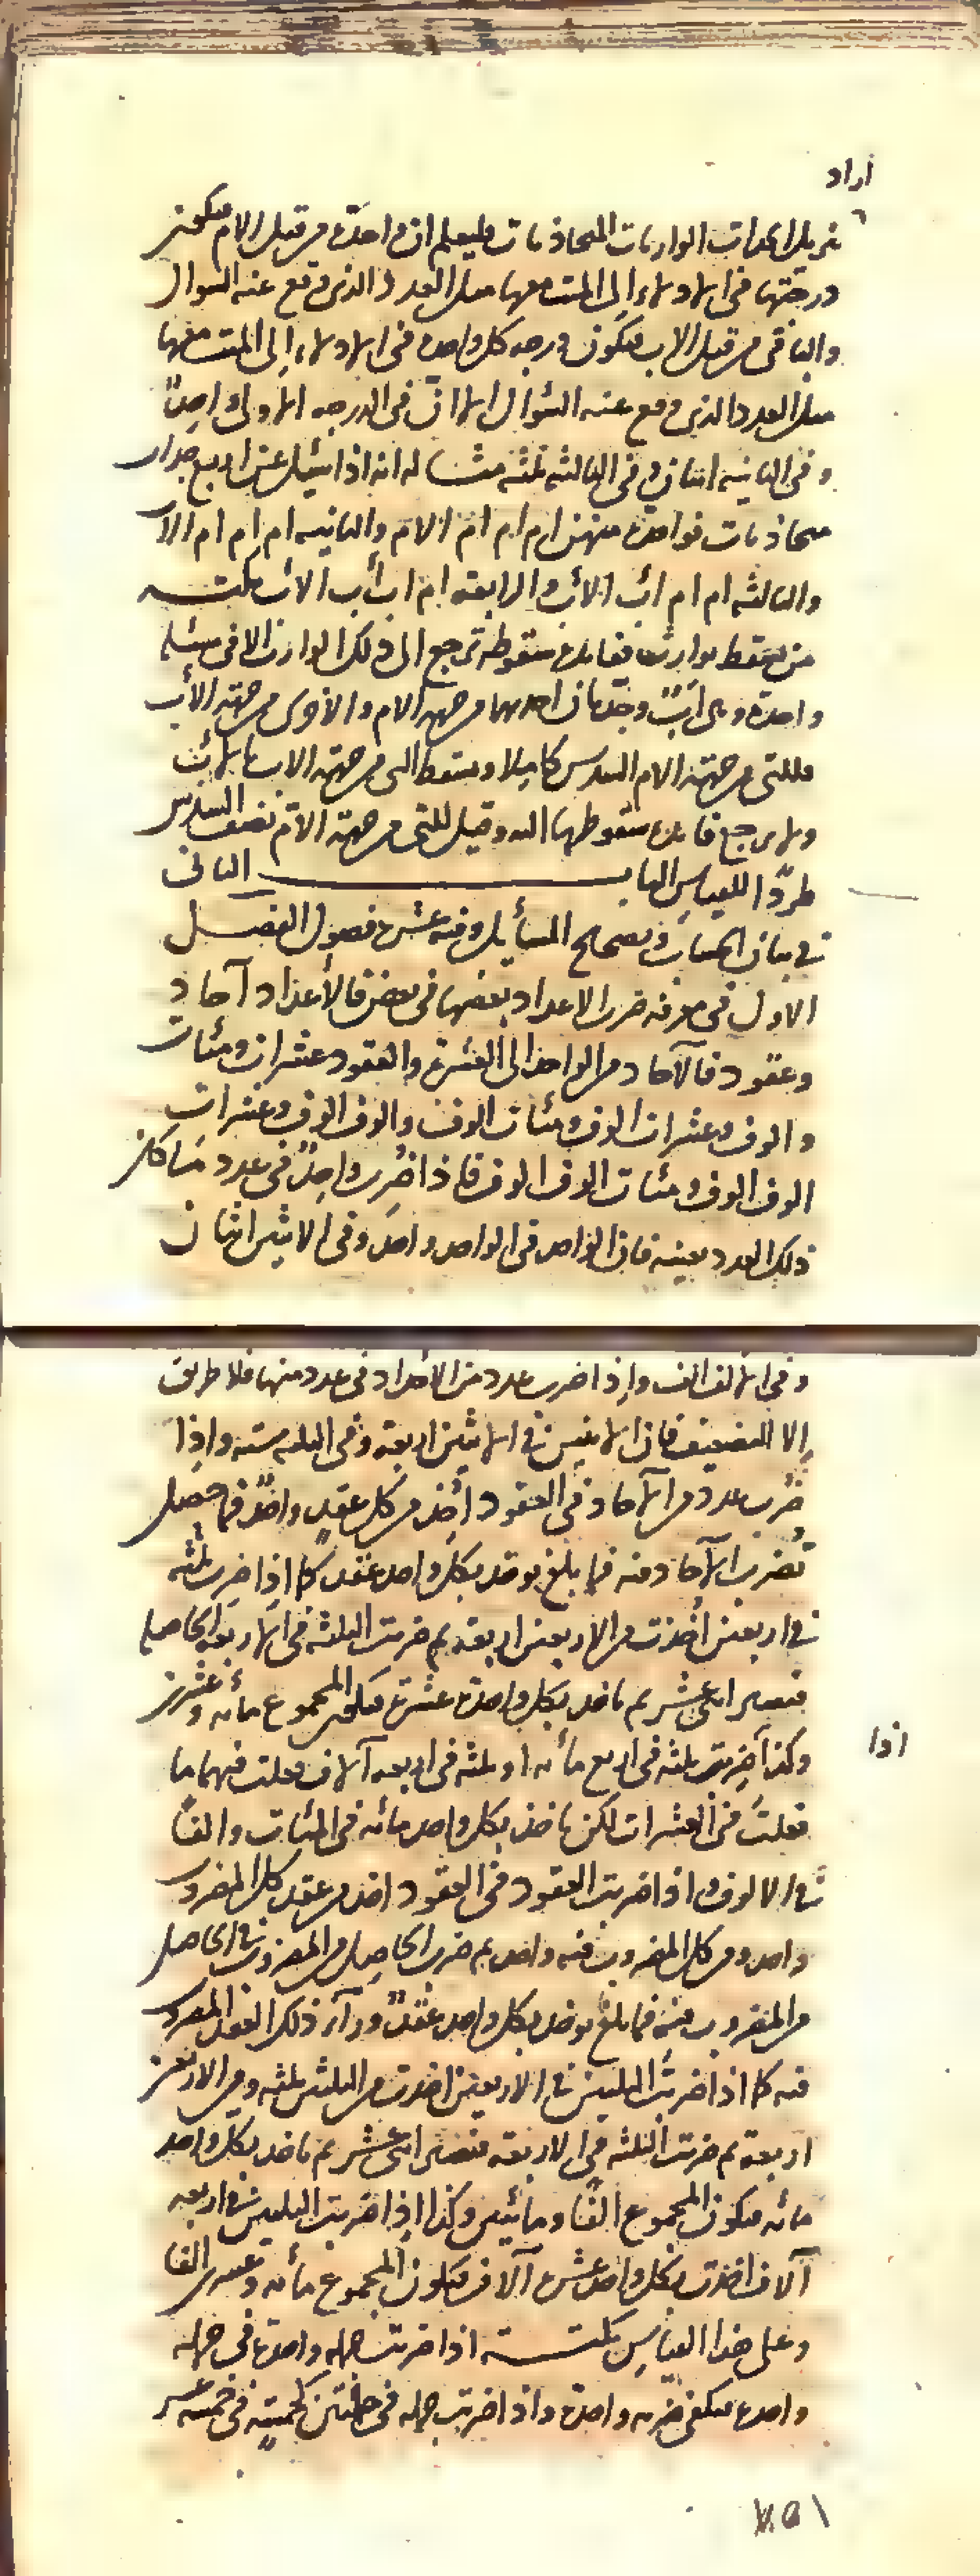 اراد
تنزيل الجدات الوارثات المتحاذيات فليعلم ان واحدة من قبل الام فيكون
درجتها في الادلاء الى الميت معها مثل العدد الذي وقع عنه السوال
والباقى من قبل الاب فيكون درجه كل واحدة في الادلاء الى الميت معها
مثل العدد الذي وقع عنه السوال الا ان في الدرجه الاولى واحدة
وفى الثانيه اثنان وفى الثالثه ثلثه مثاله انه اذا سئل عن اربع جدات
متحاذيات فواحدة منهن ام ام ام الام والثانيه ام ام ام الاب
والثالثه ام ام اب الاب والرابعه ام اب اب الاب نكتـــه
من يسقط بوارث ففايدة سقوطه ترجع الى ذلك الوارث الا فى مسئله
واحدة وهى اب وجدتان احديهما من جهة الام والاخرى من جهة الاب
فللتى من جهة الام السدس كاملا ويسقط التى من جهة الاب بالاب
ولا يرجع فايدة سقوطها اليه وقيل للتى من جهة الام نصف السدس
طردا للقياس البـــاب الثانى
فى بيان الحساب وتصحيح المسائل وفيه عشرة فصول الفصـــل
الاول فى معرفه ضرب الاعداد بعضها فى بعض فالاعداد آحاد
وعقود فالآحاد من الواحد الى العشرة والعقود عشرات ومئات
والوف وعشرات الوف ومئات الوف والوف الوف وعشرات
الوف الوف ومئات الوف الوف فاذا ضرب واحد فى عدد ما كان
ذلك العدد بعينه فان الواحد فى الواحد واحد وفى الاثنين اثنان
وفى الالف الف واذا ضرب عدد من الاعداد فى عدد منها فلا طريق
الا التضعيف فان الاثنين فى الاثنين اربعة وفى الثلثه سته واذا
ضرب عدد من الآحاد فى العقود اخذ من كل عقد واحد فما حصل
تضرب الآحاد فيه فما بلغ يوخذ بكل واحد عقد كما اذا ضرب ثلثه
فى اربعين اخذت من الاربعين اربعه ثم ضربت الثلثه فى الاربعه الحاصله
فتصير اثنى عشر ثم تاخذ بكل واحدة عشرة فيكون المجموع مائه وعشرين
وكذا ضربت ثلثه فى اربع مائه او ثلثه فى اربعه آلاف فعلت فيهما ما
اذا
فعلت فى العشرات لكن تاخذ بكل واحد مائه فى المئات والفا
فى الالوف واذا ضربت العقود فى العقود اخذ من عقد كل المضروب
واحد ومن كل المضروب فيه واحد ثم ضرب الحاصل من المضروب فى الحاصل
من المضروب فيه فما بلغ يوخذ بكل واحد عقد وراء ذلك العقد المضروب
فيه كما اذا ضربت الثلثين فى الاربعين اخذت من الثلثين ثلثه ومن الاربعين
اربعة ثم ضربت الثلثه فى الاربعه فتصير اثنى عشر ثم تاخذ بكل واحد
مائه فيكون المجموع الفا ومائتين وكذا اذا ضربت الثلثين فى اربعه
آلاف اخذت بكل واحد عشرة آلاف فيكون المجموع مائه وعشرين الفا
وعلى هذا القياس نكتـــه اذا ضربت جمله واحدة فى جمله
واحدة فيكفى ضربه واحدة واذا ضربت جمله فى جملتين كخمسه فى خمسه عشر